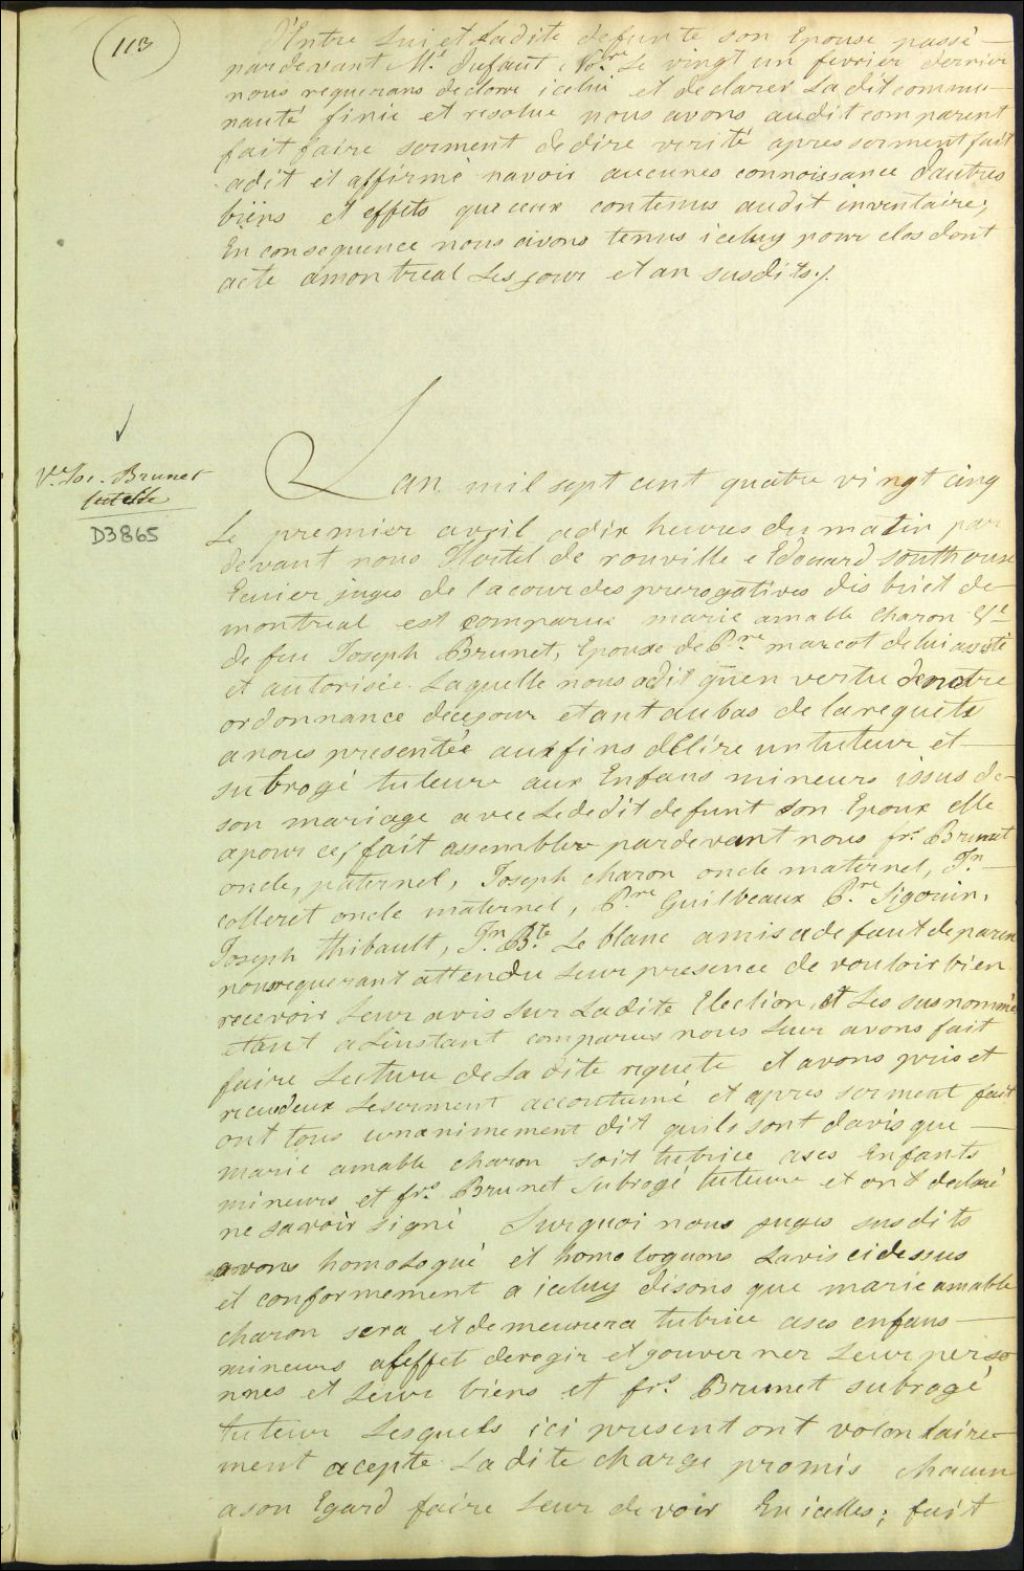 113
D'Entre Lui et Ladite defunte son Epouse passé
pardevant Mc. Dufaut Nore. Le vingt un fevrier dernier
nous requerans declorre icelui et declarer Ladit commu-
nauté finie et resolue nous avons audit comparent
fait faire serment de dire verité apres serment fait
adit et affirmé navoir aucunes connoissance dautres
biens et effets que ceux contenus audit inventaire;
En consequence nous avons tenus iceluy pour clos dont
acte amontreal Les jour et an susdits./.
Ve. Jos. Brunet
tutelle
D3865
Lan mil sept cent quatre vingt cinq
Le premier avril adix heures du matin par
devant nous Hertel de rouville e Edouard Southouse
Ecuier juges de lacour des prerogatives district de
montreal est comparue marie amable charon Ve.
de feu Joseph Brunet, Epouse de Pre. marcot de lui assisté
et autorisée. Laquelle nous adit quen vertu denotre
ordonnance decejour etant aubas de la requete
anous presentée aux fins délire un tuteur et
subrogé tuteure aux Enfans mineurs issus de
son mariage avec Lededit defunt son Epoux elle
apour cet fait assembler pardevant nous frs. Brunet
oncle, paternel, Joseph charon oncle maternel, Jn.
colleret oncle maternel, Pre. Guilbeaux Pre. Sigouin,
Joseph Thibault, Jn. Bte. Le blanc amis adefaut de paren
nous requerant attendu Leur presence de vouloir bien
recevoir Leur avis sur Ladite Election, et Les susnommé
etant alinstant comparus nous Leur avons fait
faire Lecture de La dite requete et avons pris et
recu deux Leserment accoutumé et apres serment fait
ont tous unanimement dit quils sont davis que
marie amable charon soit tutrice ases Enfants
mineurs et frs. Brunet Subrogé tuteure et ont declaré
ne savoir signé Surquoi nous juges susdits
avons homologué et homologuons Lavis cidessus
et conformement a iceluy disons que marie amable
charon sera et demeurera tutrice ases enfans
mineurs aleffet deregir et gouverner Leur perso
nnes et Leur biens et frs. Brunet subrogé
tuteur Lesquels ici present ont volontaire-
ment acepte Ladite charge promis chacun
ason Egard faire Leur devoir En icelles; fait